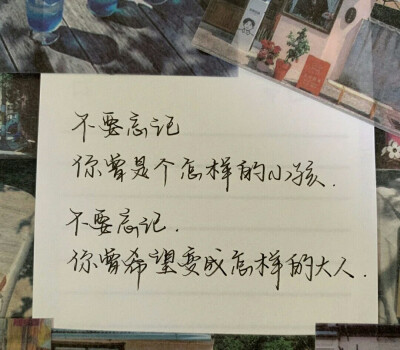 不要忘记
你曾是个怎样的小孩.
不要忘记.
你曾希望变成怎样的大人.